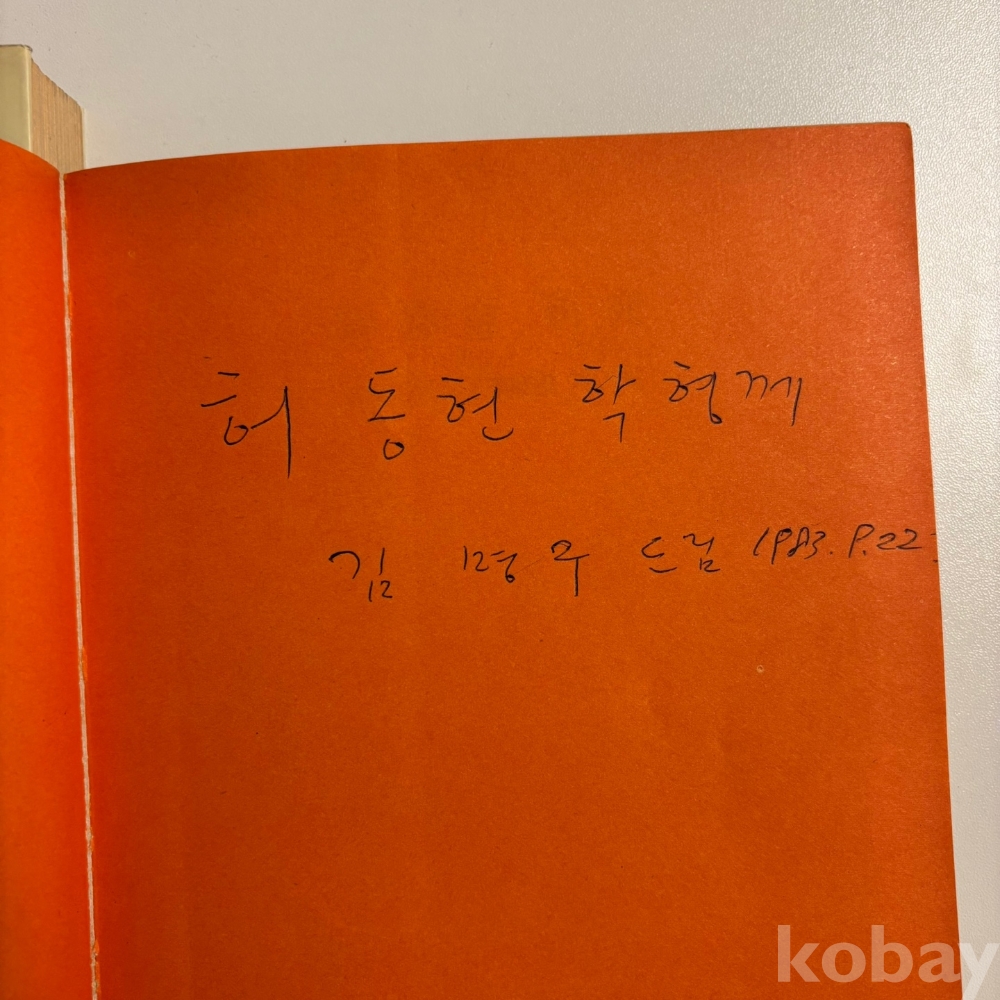 허 동현 학형께
김 명우 드림 1983. 9. 22
kobay